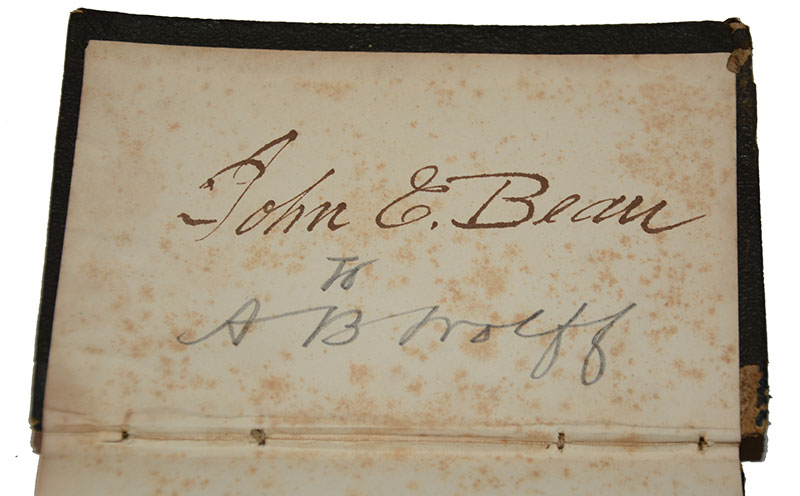 John E. Bean
to
A B Wolff